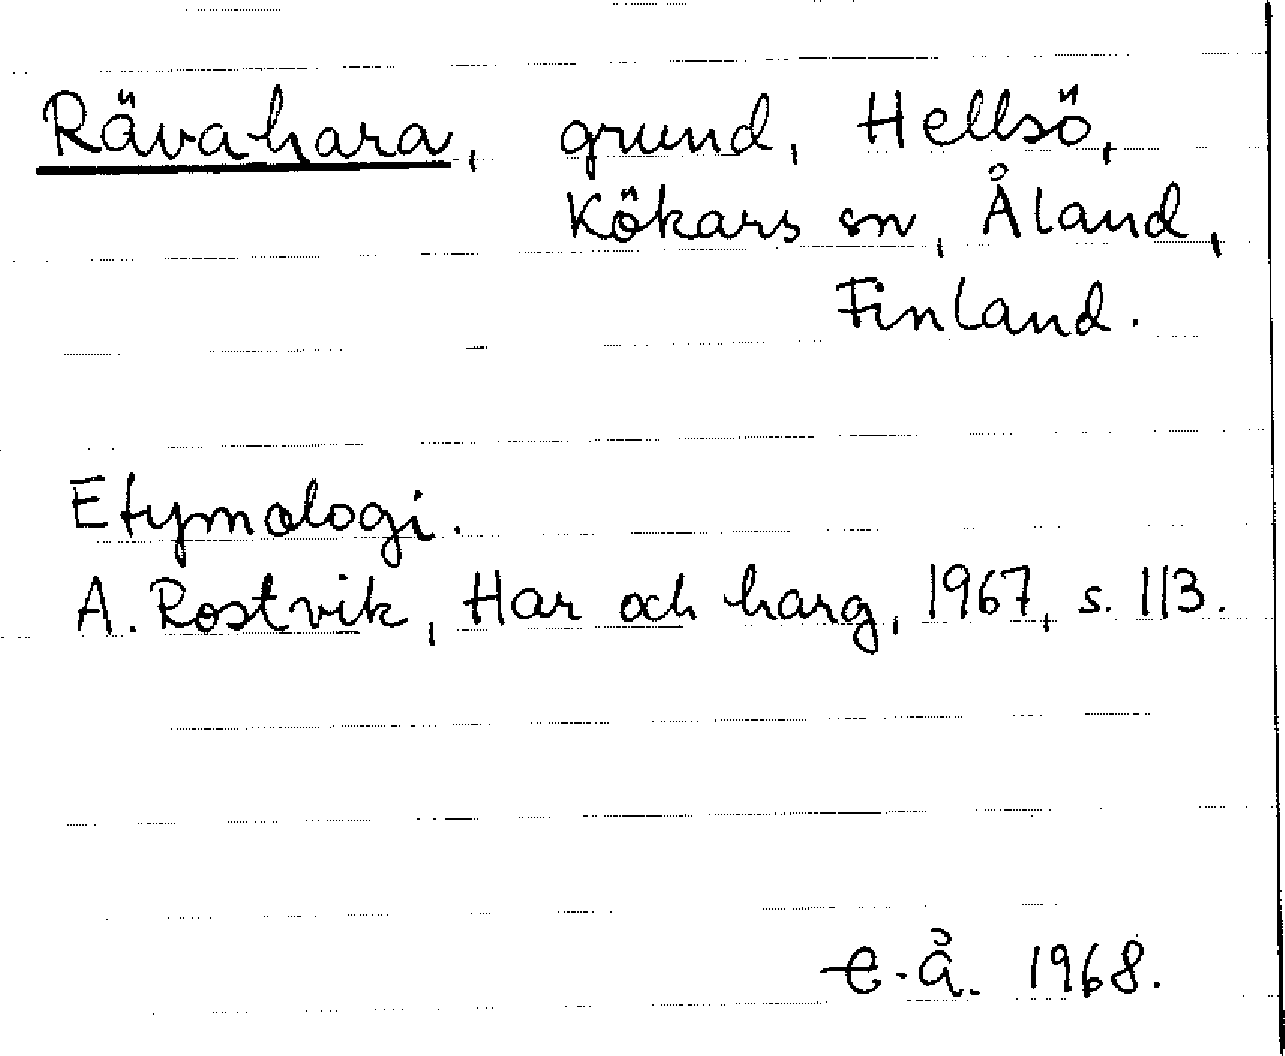 Rävahara, grund, Hellsö,
Kökars sn, Åland,
Finland.
Etymologi.
A. Rostvik, Har och harg, 1967, s. 113.
e.å. 1968.